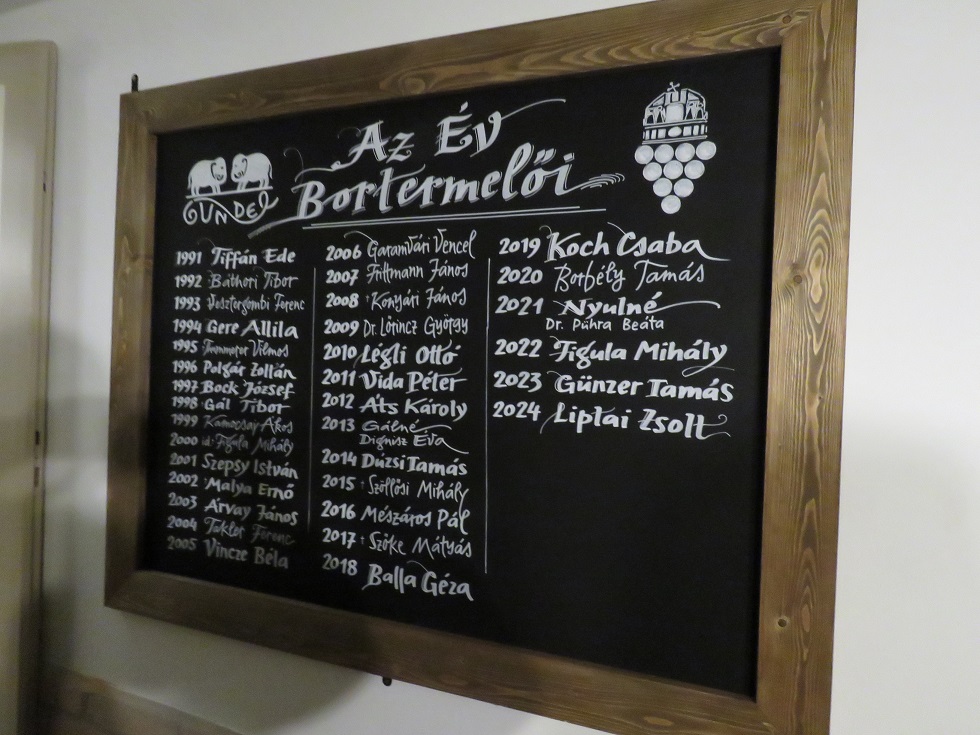 Az Év
Bortermelői
GUNDEL
1991 Tiffán Ede
1992 Báthori Tibor
1993 Vesztergombi Ferenc
1994 Gere Attila
1995 Thummerer Vilmos
1996 Polgár Zoltán
1997 Bock József
1998 Gál Tibor
1999 Kamocsay Ákos
2000 id. Figula Mihály
2001 Szepsy István
2002 Malya Ernő
2003 Árvay János
2004 Takler Ferenc
2005 Vincze Béla
2006 Garamvári Vencel
2007 Frittmann János
2008 † Konyári János
2009 Dr. Lőrincz György
2010 Légli Ottó
2011 Vida Péter
2012 Áts Károly
2013 Gálné
Dignisz Éva
2014 Dúzsi Tamás
2015 † Szöllősi Mihály
2016 Mészáros Pál
2017 † Szőke Mátyás
2018 Balla Géza
2019 Koch Csaba
2020 Borbély Tamás
2021 Nyulné
Dr. Pühra Beáta
2022 Figula Mihály
2023 Günzer Tamás
2024 Liptai Zsolt